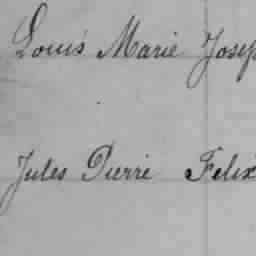 Louis Marie Josep
Jules Pierre Felix